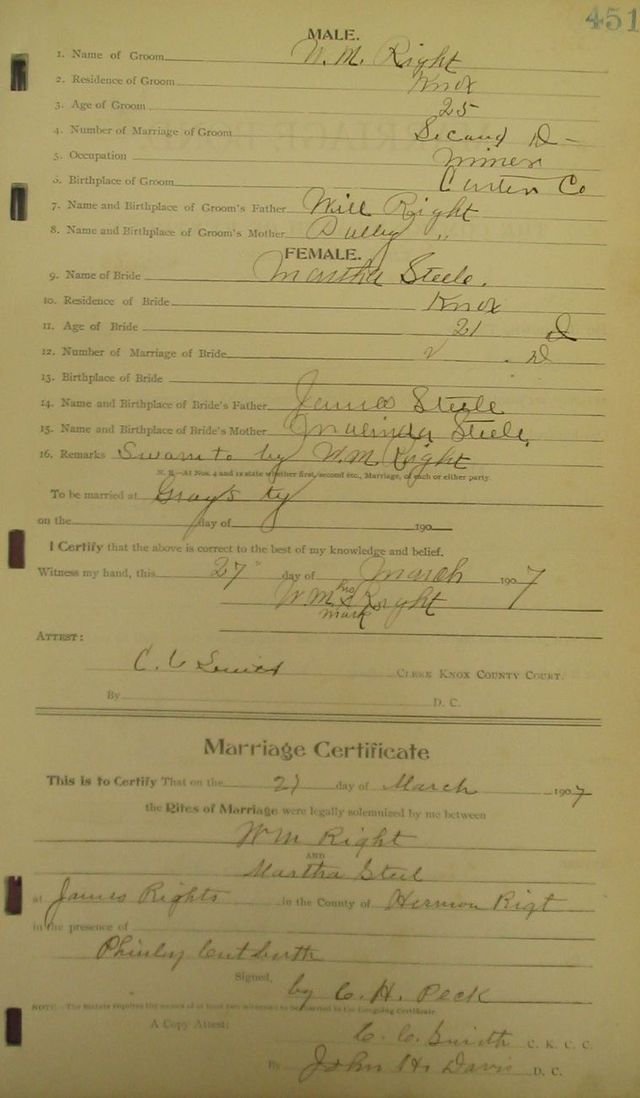 451
MALE.
1. Name of Groom W. M. Right
2. Residence of Groom Knox
3. Age of Groom 25
4. Number of Marriage of Groom Secand D -
5. Occupation miner
6. Birthplace of Groom Co
7. Name and Birthplace of Groom's Father Will Right
8. Name and Birthplace of Groom's Mother "
FEMALE.
9. Name of Bride Martha Steele.
10. Residence of Bride Knox
11. Age of Bride 21 D
12. Number of Marriage of Bride D
13. Birthplace of Bride
14. Name and Birthplace of Bride's Father James Steele
15. Name and Birthplace of Bride's Mother Malinda Steele,
16. Remarks Swam to by W.M. Right
N. B.—At Nos. 4 and 12 state whether first, second etc., Marriage, of each or either party.
To be married at Grays
on the day of 190
I Certify that the above is correct to the best of my knowledge and belief.
Witness my hand, this 27" day of March 1907
W M his x Right
mark
ATTEST:
C. C. CLERK KNOX COUNTY COURT.
By D. C.
Marriage Certificate
This is to Certify That on the day of March 1907
the Rites of Marriage were legally solemnized by me between
Wm Right
AND
Martha Steel
at James Rights in the County of
in the presence of
Signed, by C. H. Peck
NOTE:—The Statute requires the names of at least two witnesses to be inserted in the foregoing Certificate.
A Copy Attest: C. C. Smith C. K. C. C.
By John H. Davis D. C.